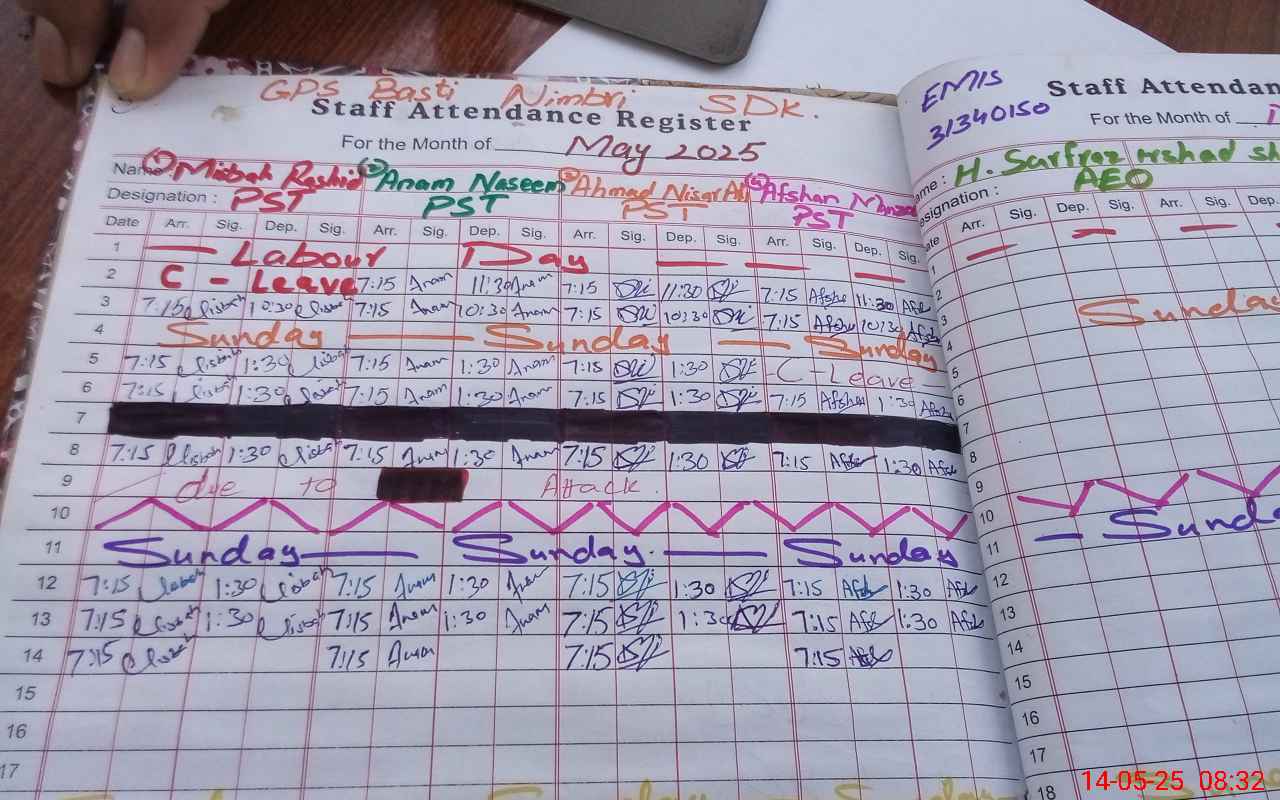 GPS Basti Nimbri SDK.
Staff Attendance Register
For the Month of May 2025
Name 1 Misbah Rashid 2 Anam Naseem 3 Ahmad Nisar Ali 4 Afshan
Designation : PST PST PST PST
Date Arr. Sig. Dep. Sig. Arr. Sig. Dep. Sig. Arr. Sig. Dep. Sig. Arr. Sig. Dep. Sig.
1 Labour Day
2 C - Leave 7:15 Anam 11:30 Anam 7:15 11:30 7:15 Afshe 11:30 Afsh
3 7:15 Misbah 10:30 Misbah 7:15 Anam 10:30 Anam 7:15 10:30 7:15 Afshe 10:30 Afsh
4 Sunday Sunday Sunday
5 7:15 Misbah 1:30 Misbah 7:15 Anam 1:30 Anam 7:15 1:30 C - Leave
6 7:15 Misbah 1:30 Misbah 7:15 Anam 1:30 Anam 7:15 1:30 7:15 Afshe 1:30 Afsh
7
8 7:15 Misbah 1:30 Misbah 7:15 Anam 1:30 Anam 7:15 1:30 7:15 Afsh 1:30 Afsh
9 due to Attack.
10
11 Sunday Sunday. Sunday
12 7:15 Misbah 1:30 Misbah 7:15 Anam 1:30 Anam 7:15 1:30 7:15 Afsh 1:30 Afsh
13 7:15 Misbah 1:30 Misbah 7:15 Anam 1:30 Anam 7:15 1:30 7:15 Afsh 1:30 Afsh
14 7:15 Misbah 7:15 Anam 7:15 7:15 Afsh
15
16
17
EMIS
31340150
Staff Attendan
For the Month of
ame : H. Sarfraz Arshad Sh
esignation : AEO
ate Arr. Sig. Dep. Sig. Arr. Sig. Dep.
1
2
3 Sunday
4
5
6
7
8
9
10
11 Sunda
12
13
14
15
16
17
18
14-05-25 08:32